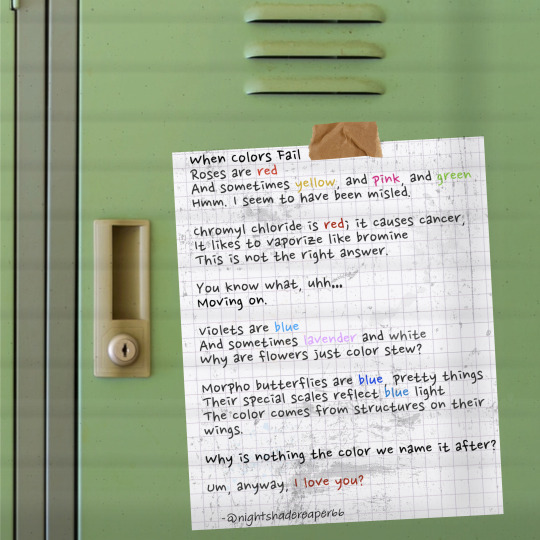 When Colors Fail
Roses are red
And sometimes yellow, and pink, and green
Hmm. I seem to have been misled.
chromyl chloride is red; it causes cancer,
It likes to vaporize like bromine
This is not the right answer.
You know what, uhh...
Moving on.
Violets are blue
And sometimes lavender and white
Why are flowers just color stew?
Morpho butterflies are blue, pretty things
Their special scales reflect blue light
The color comes from structures on their
wings.
Why is nothing the color we name it after?
Um, anyway, I love you?
-@nightshadereaper66